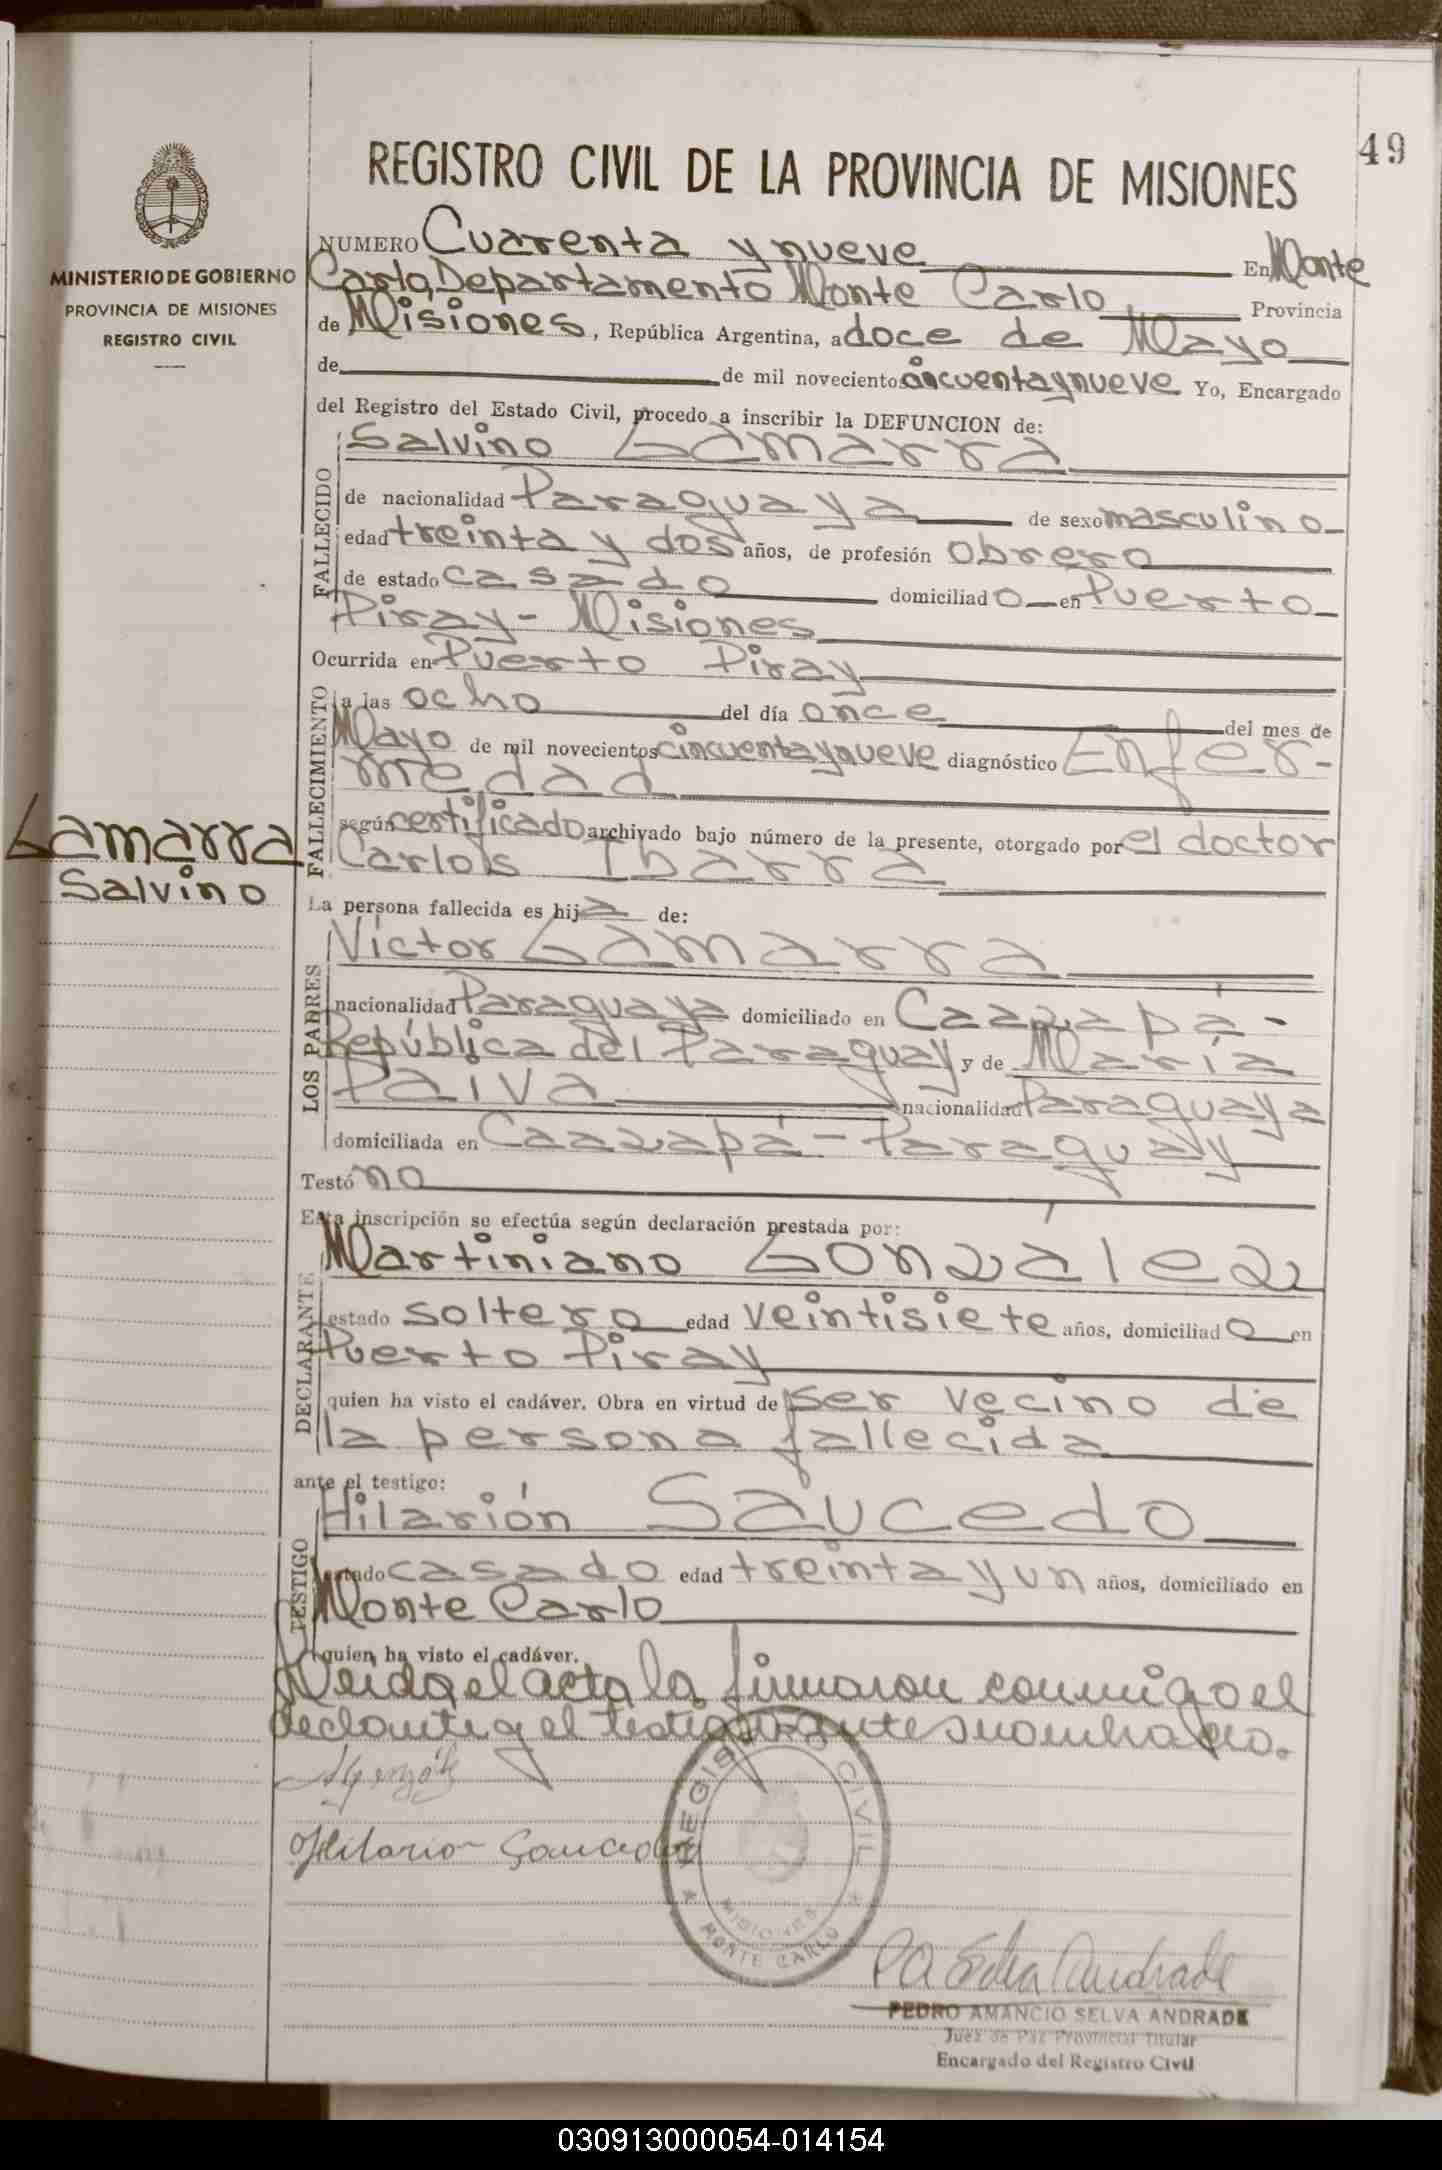 49
MINISTERIO DE GOBIERNO
PROVINCIA DE MISIONES
REGISTRO CIVIL
REGISTRO CIVIL DE LA PROVINCIA DE MISIONES
NUMERO Cuarenta y nueve En Monte
Carlo, Departamento Monte Carlo, Provincia
de Misiones, República Argentina, a doce de Mayo
de de mil novecientos cincuenta y nueve Yo, Encargado
del Registro del Estado Civil, procedo a inscribir la DEFUNCION de:
FALLECIDO
Salvino Lamarra
de nacionalidad Paraguaya de sexo masculino
edad treinta y dos años, de profesión obrero
de estado casado domiciliado en Puerto
Piray - Misiones
Ocurrida en Puerto Piray
FALLECIMIENTO
a las ocho del día once del mes de
Mayo de mil novecientos cincuenta y nueve diagnóstico Enfer-
medad
según certificado archivado bajo número de la presente, otorgado por el doctor
Carlos Ibarra
Lamarra
Salvino
La persona fallecida es hija de:
LOS PADRES
Víctor Lamarra
nacionalidad Paraguaya domiciliado en Caazapá -
República del Paraguay y de María
Paiva nacionalidad Paraguaya
domiciliada en Caazapá - Paraguay
Testó no
Esta inscripción se efectúa según declaración prestada por:
DECLARANTE
Martiniano Gonzalez
estado soltero edad veintisiete años, domiciliado en
Puerto Piray
quien ha visto el cadáver. Obra en virtud de ser vecino de
la persona fallecida
ante el testigo:
TESTIGO
Hilarión Saucedo
estado casado edad treinta y un años, domiciliado en
Monte Carlo
quien ha visto el cadáver.
Leida el acta la firmaron conmigo el
declarante y el testigo antes nombrado.
Hilario Saucedo
REGISTRO CIVIL
MISIONES
MONTE CARLO
PA Selva Andrade
PEDRO AMANCIO SELVA ANDRADE
Juez de Paz Provincial Titular
Encargado del Registro Civil
030913000054-014154